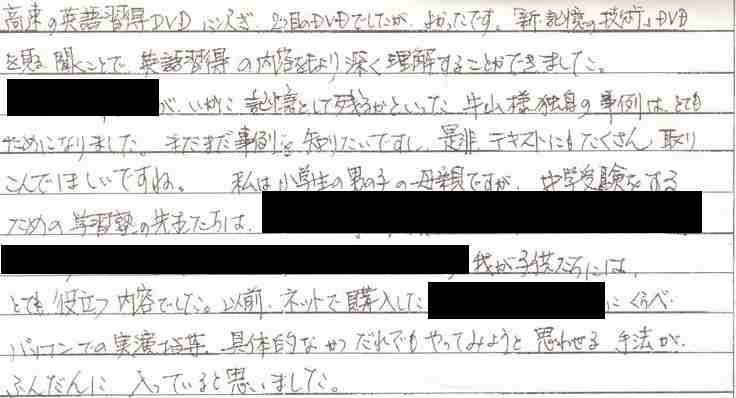 高速の英語習得DVDにつぎ、2つ目のDVDでしたが、よかったです。「新・記憶の技術」DVD
を見る 聞くことで、英語習得の内容をより深く理解することができました。
が、いかに記憶として残るかといった 牛山様独自の事例は、とても
ためになりました。まだまだ事例を知りたいですし、是非テキストにもたくさん取り
こんでほしいですね。 私は小学生の男の子の母親ですが、中学受験をする
ための学習塾の先生たちは、
我が子供たちには、
とても役立つ内容でした。以前、ネットで購入した にくらべ、
パソコンでの実演等、具体的なかつだれでもやってみようと思わせる手法が、
ふんだんに入っていると思いました。